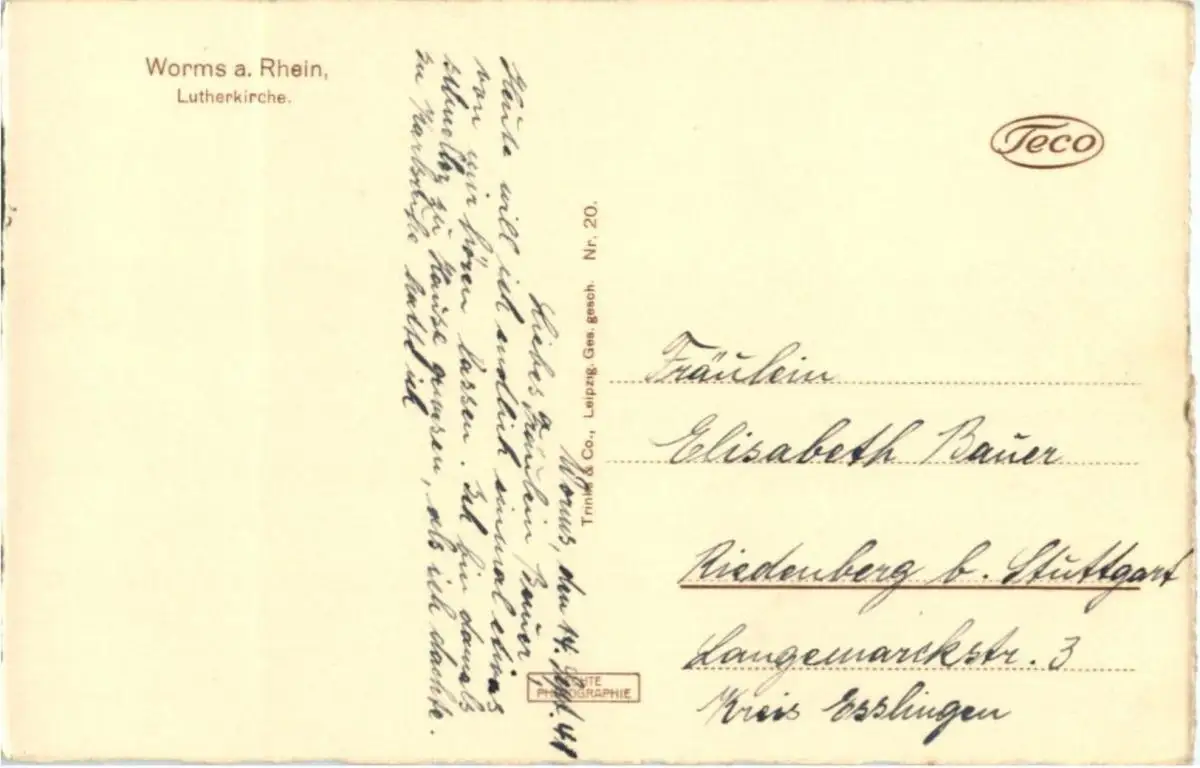 Worms a. Rhein,
Lutherkirche.
Teco
Trinks & Co., Leipzig. Ges. gesch. Nr. 20.
ECHTE
PHOTOGRAPHIE
Worms, den 14. Sept. 41
Liebes Fräulein Bauer,
Heute will ich endlich einmal etwas
von mir hören lassen. Ich bin damals
schneller zu Hause gewesen, als ich dachte.
zu hatte ich
Fräulein
Elisabeth Bauer
Riedenberg b. Stuttgart
Langemarckstr. 3
Kreis Esslingen